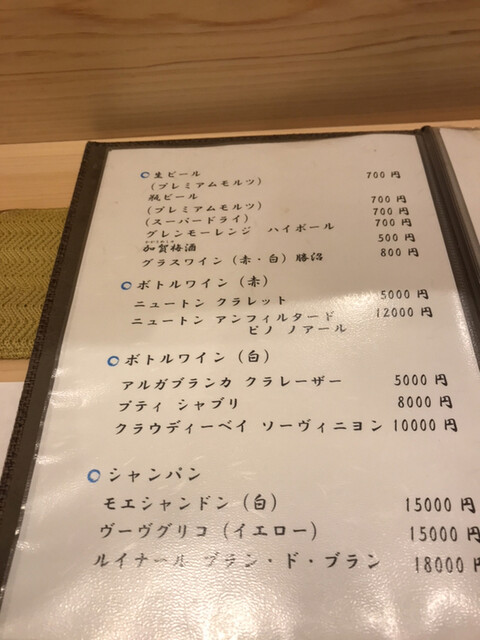 生ビール 700 円
(プレミアムモルツ)
瓶ビール 700 円
(プレミアムモルツ) 700 円
(スーパードライ) 700 円
グレンモーレンジ ハイボール
加賀梅酒 500 円
グラスワイン (赤・白) 勝沼 800 円
ボトルワイン (赤)
ニュートン クラレット 5000 円
ニュートン アンフィルタード 12000 円
ピノ ノアール
ボトルワイン (白)
アルガブランカ クラレーザー 5000 円
プティ シャブリ 8000 円
クラウディーベイ ソーヴィニヨン 10000 円
シャンパン
モエシャンドン (白) 15000 円
ヴーヴグリコ (イエロー) 15000 円
ルイナール ブラン・ド・ブラン 18000 円